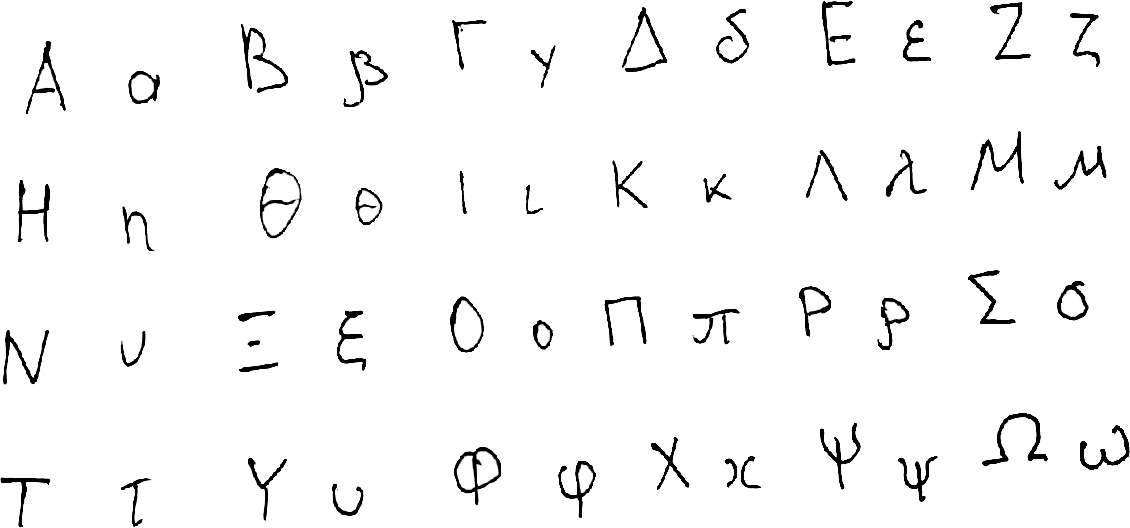 Α α Β β Γ γ Δ δ Ε ε Ζ ζ
Η η Θ θ Ι ι Κ κ Λ λ Μ μ
Ν υ Ξ ξ Ο ο Π π Ρ ρ Σ σ
Τ τ Υ υ Φ φ Χ χ Ψ ψ Ω ω